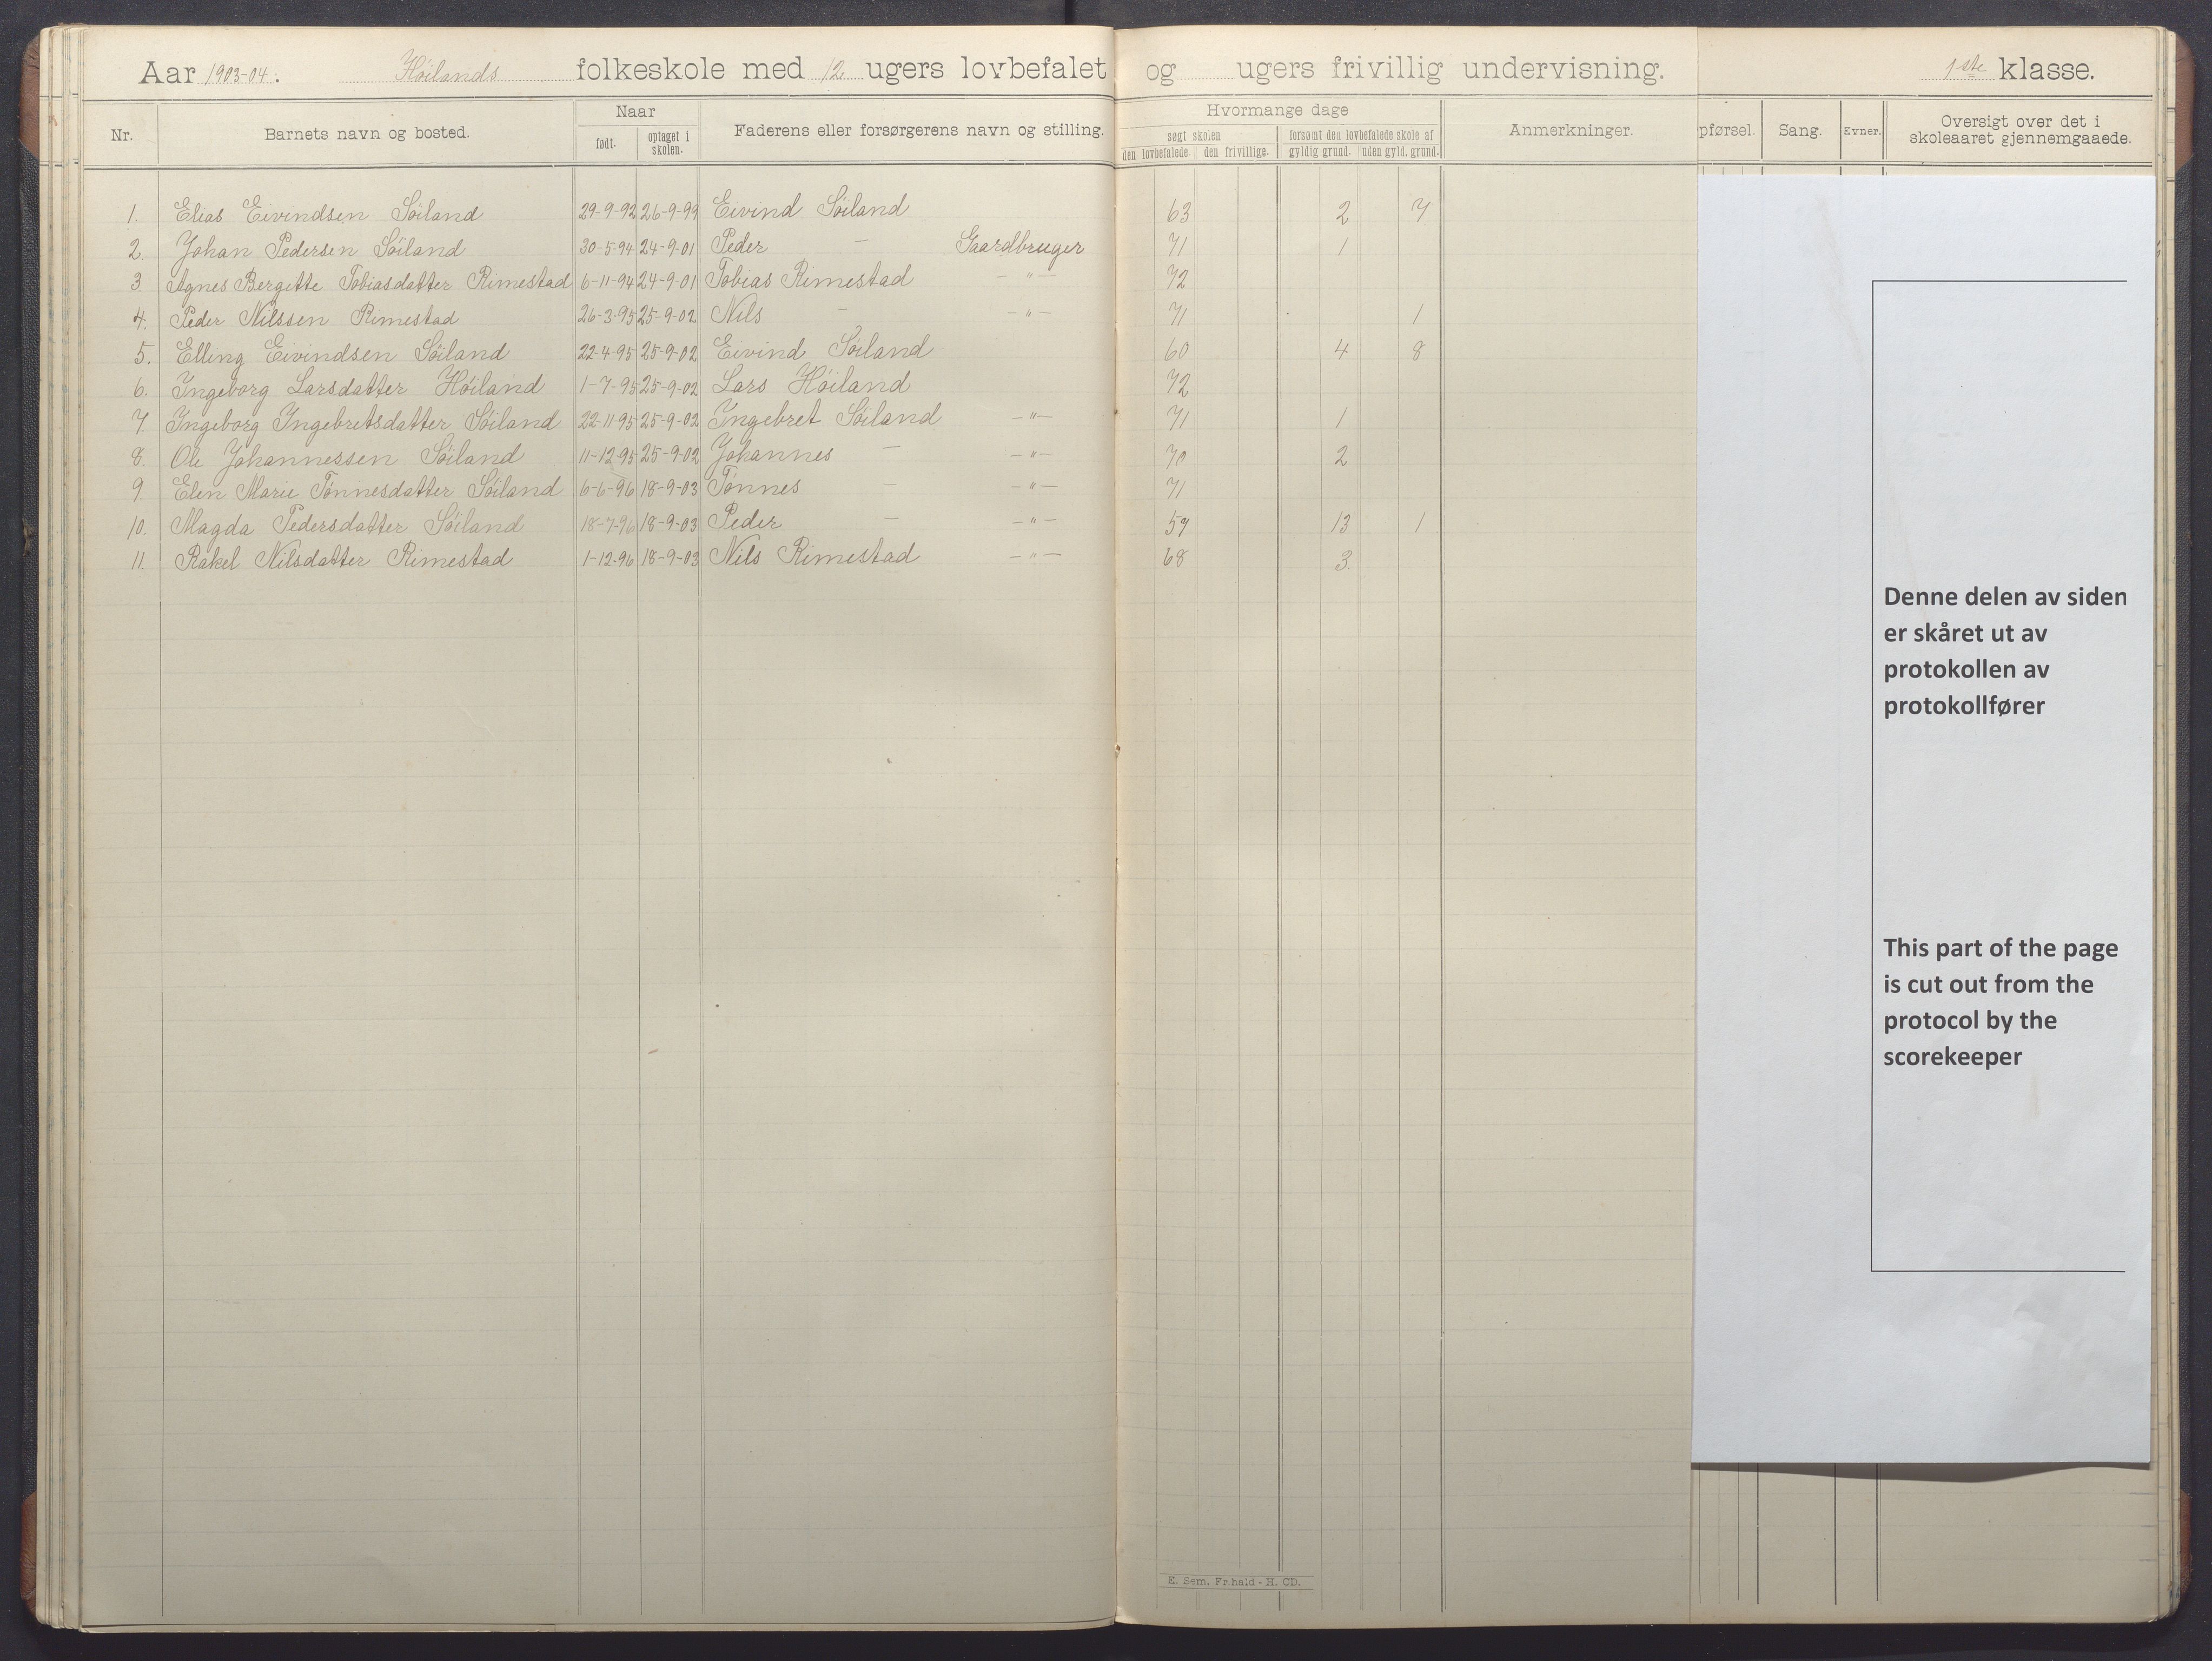 Aar 1903-04. Høilands folkeskole med 12 ugers lovbefalet og ugers frivillig undervisning. 1ste klasse.
Nr. Barnets navn og bosted. Naar født. optaget i skolen. Faderens eller forsørgerens navn og stilling. Hvormange dage søgt skolen den lovbefalede. den frivillige. forsømt den lovbefalede skole af gyldig grund. uden gyld. grund. Anmerkninger. pførsel. Sang. Evner. Oversigt over det i skoleaaret gjennemgaaede.
1. Elias Eivindsen Söiland 29-9-92 26-9-99 Eivind Söiland 63 2 7
2. Johan Pedersen Söiland 30-5-94 24-9-01 Peder — Gaardbruger 71 1
3 Agnes Bergitte Tobiasdatter Rimestad 6-11-94 24-9-01 Tobias Rimestad — " — 72
4. Peder Nilssen Rimestad 26-3-95 25-9-02 Nils — — " — 71 1
5. Elling Eivindsen Söiland 22-4-95 25-9-02 Eivind Söiland 60 4 8
6. Ingeborg Larsdatter Höiland 1-7-95 25-9-02 Lars Höiland 72
7. Ingeborg Ingebretsdatter Söiland 22-11-95 25-9-02 Ingebret Söiland — " — 71 1
8. Ole Johannessen Söiland 11-12-95 25-9-02 Johannes — — " — 70 2
9. Elen Marie Tönnesdatter Söiland 6-6-96 18-9-03 Tönnes — — " — 71
10. Magda Pedersdatter Söiland 18-7-96 18-9-03 Peder — — " — 59 13 1
11. Rakel Nilsdatter Rimestad 1-12-96 18-9-03 Nils Rimestad — " — 68 3.
Denne delen av siden
er skåret ut av
protokollen av
protokollfører
This part of the page
is cut out from the
protocol by the
scorekeeper
E. Sem. Fr.hald - H. CD.